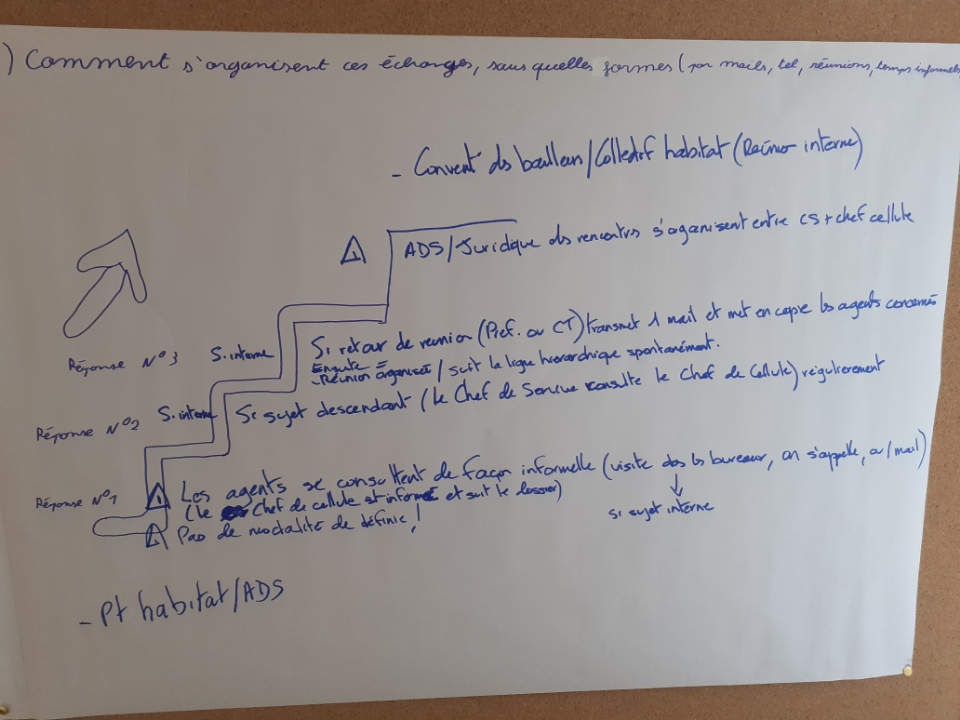 ) Comment s'organisent ces échanges, sous quelles formes (par mails, tel, réunions, temps informels
- Convent° des bailleurs/Collectif habitat (Réunion interne)
ADS/Juridique des rencontres s'organisent entre CS + chef cellule
Réponse N°3 S. interne Si retour de reunion (Pref. ou CT) transmet 1 mail et met en copie les agents concernés
Ensuite =
- Réunion organisée / suit la ligne hierarchique spontanément.
Réponse N°2 S. interne Si sujet descendant (le Chef de Service consulte le Chef de Cellule) régulierement
Réponse N°1 Les agents se consultent de façon informelle (visite ds les bureaux, on s'appelle, ou/mail)
(le Chef de cellule est informé et suit le dossier)
si sujet interne
Pas de modalité de définie !
- Pt habitat/ADS